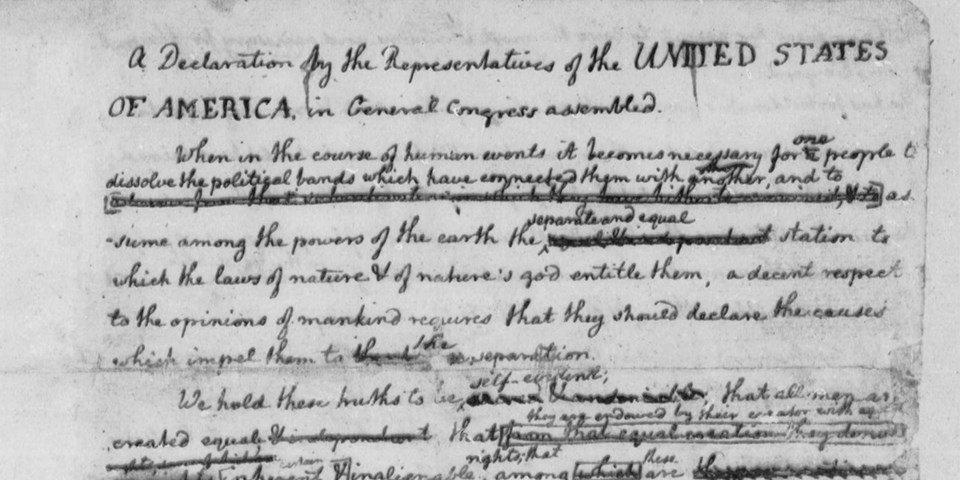 A Declaration by the Representatives of the UNITED STATES
OF AMERICA, in General Congress assembled.
one
When in the course of human events it becomes necessary for a people t
dissolve the political bands which have connected them with another, and to
advance from that subordination in which they have hitherto remained, & to as
separate and equal
-sume among the powers of the earth the equal & independant station to
which the laws of nature & of nature's god entitle them, a decent respect
to the opinions of mankind requires that they should declare the causes
the
which impel them to the separation.
self-evident;
We hold these truths to be sacred & undeniable; that all men ar
they are endowed by their creator with
created equal & independant that from that equal creation they derive
rights; that
certain
these
inherent & inalienable, among which are